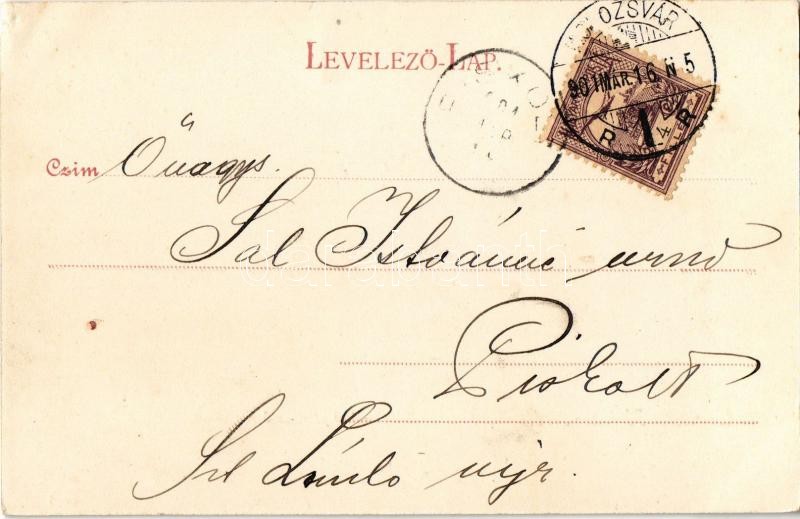 LEVELEZŐ-LAP.
KOLOZSVÁR
901 MÁR. 16. N 5
Czim Őnagys.
Sal Istvánné urnő
Piskolt
Szl László ujr.